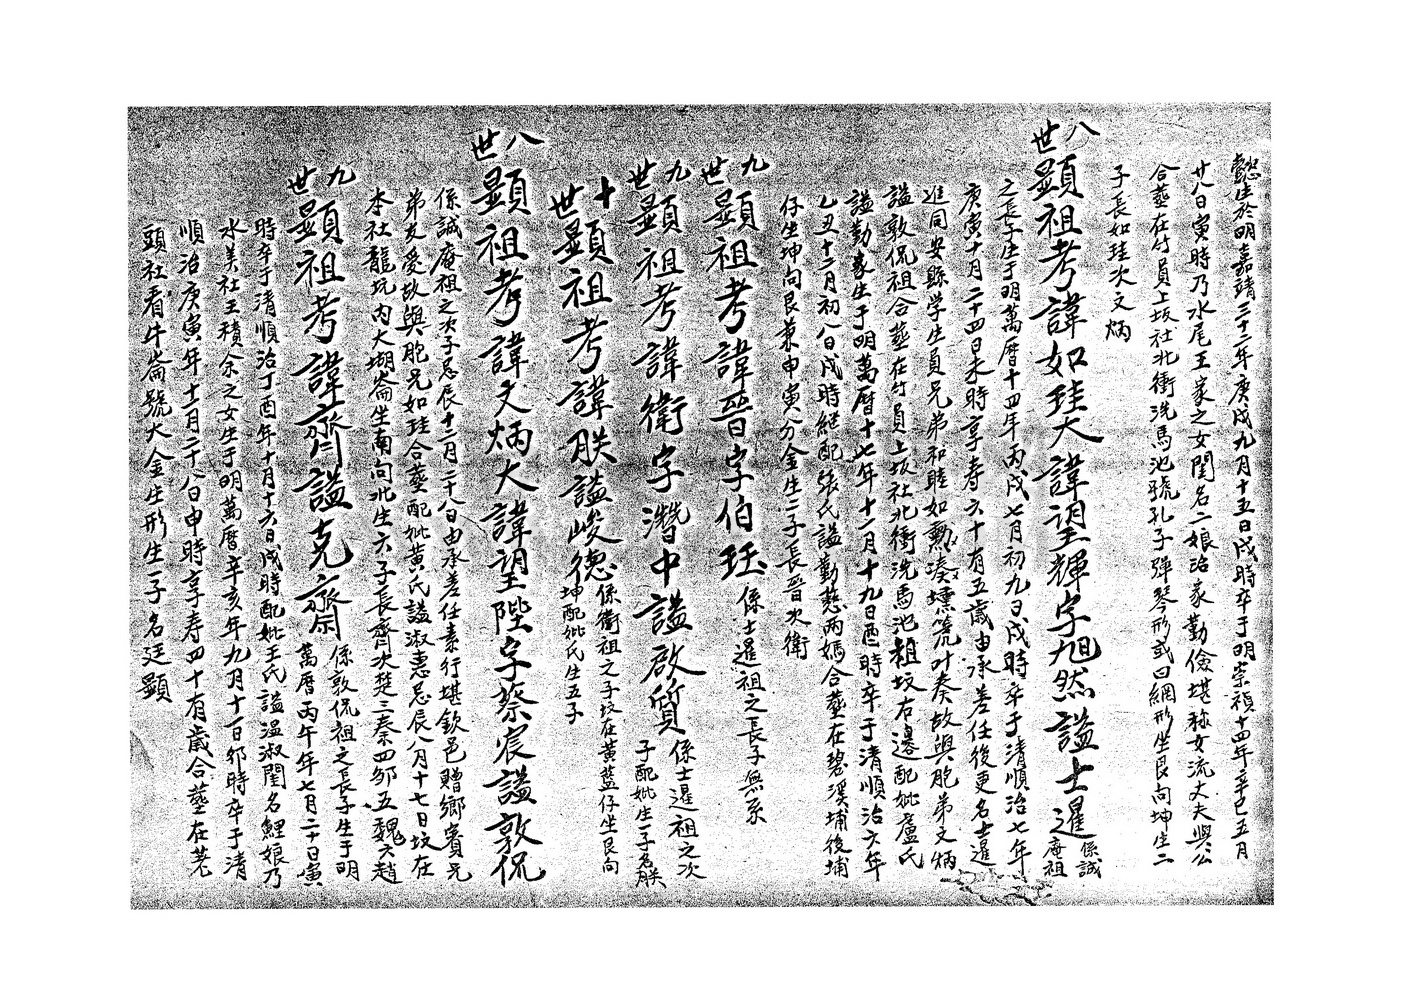 懿生於明嘉靖三十二年庚戌九月十五日戌時卒于明崇禎十四年辛巳五月
廿八日寅時乃水尾王家之女閨名二娘治家勤儉堪称女流丈夫與公
合葬在竹員上坂社北衝洗馬池號孔子彈琴形或曰網形坐艮向坤生二
子長如珪次文炳
八世顯祖考諱如珪大諱望輝字旭然謚士暹係誠庵祖
之長子生于明萬曆十四年丙戌七月初九日戌時卒于清順治七年
庚寅十月二十四日未時享寿六十有五歲由承差任後更名士暹
進同安縣学生員兄弟和睦如勳湊壎箎叶奏故與胞弟文炳
謚敦侃祖合葬在竹員上坂社北衝洗馬池祖坟右邊配妣盧氏
謚勤家生于明萬曆十七年十一月十九日酉時卒于清順治六年
乙丑十二月初八日戌時継配張氏謚勤慈两媽合葬在碧溪埔後埔
仔坐坤向艮兼申寅分金生二子長晉次衛
九世顯祖考諱晉字伯珏係士暹祖之長子無系
九世顯祖考諱衛字潛中謚啟質係士暹祖之次子配妣生一子名朕
十世顯祖考諱朕謚峻德係衛祖之子坟在黃藍仔坐艮向坤配妣氏生五子
八世顯祖考諱文炳大諱望陛字蔡宸謚敦侃
係誠庵祖之次子忌辰十二月二十八日由承差任素行堪欽邑贈鄉賓兄
弟友愛故與胞兄如珪合葬配妣黃氏謚淑惠忌辰八月十七日坟在
本社龍坑内大塯崙坐南向北生六子長齊次楚三秦四邹五魏六趙
九世顯祖考諱齊謚克齋係敦侃祖之長子生于明萬曆丙午年七月二十日寅
時卒于清順治丁酉年十月十六日戌時配妣王氏謚温淑閨名鯉娘乃
水美社王積余之女生于明萬曆辛亥年九月十一日卯時卒于清
順治庚寅年十月二十八日申時享寿四十有歲合葬在茗
頭社看牛崙號大金生形生一子名廷顯